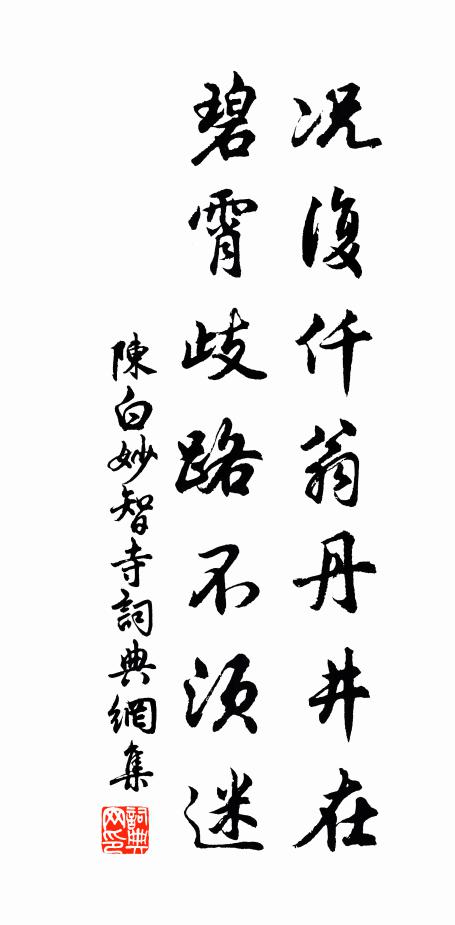 况復仟翁丹井在
碧霄歧路不須迷
陳白妙智寺詞典網集
詞典网印